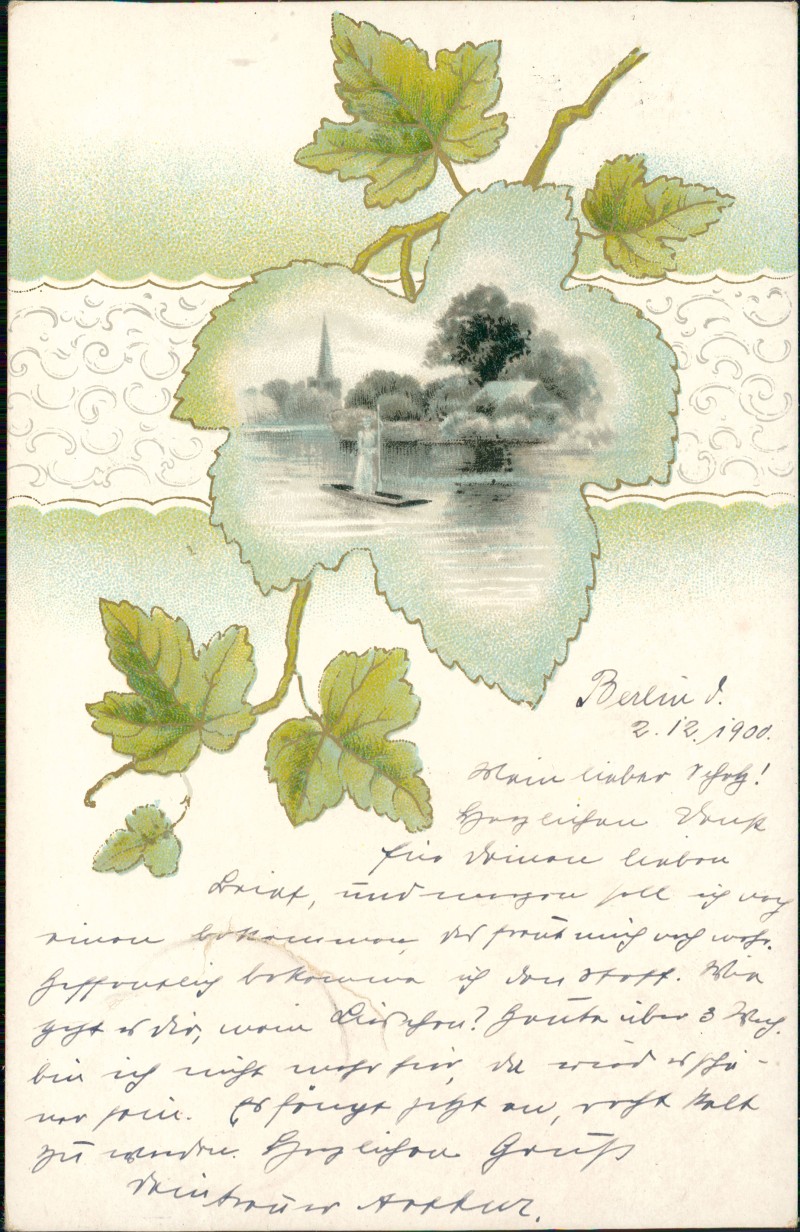 Berlin d.
2.12.1900.
Mein lieber Schatz!
Herzlichen Dank
für Deinen lieben
Brief, und morgen soll ich noch
einen bekommen, das freut mich noch mehr.
Hoffentlich bekomme ich den Stoff. Wie
geht es dir, mein Lieschen? Heute über 3 Woch.
bin ich nicht mehr hier, da wird es schö-
ner sein. Es fängt jetzt an, recht kalt
zu werden. Herzlichen Gruß
Dein treuer Arthur.